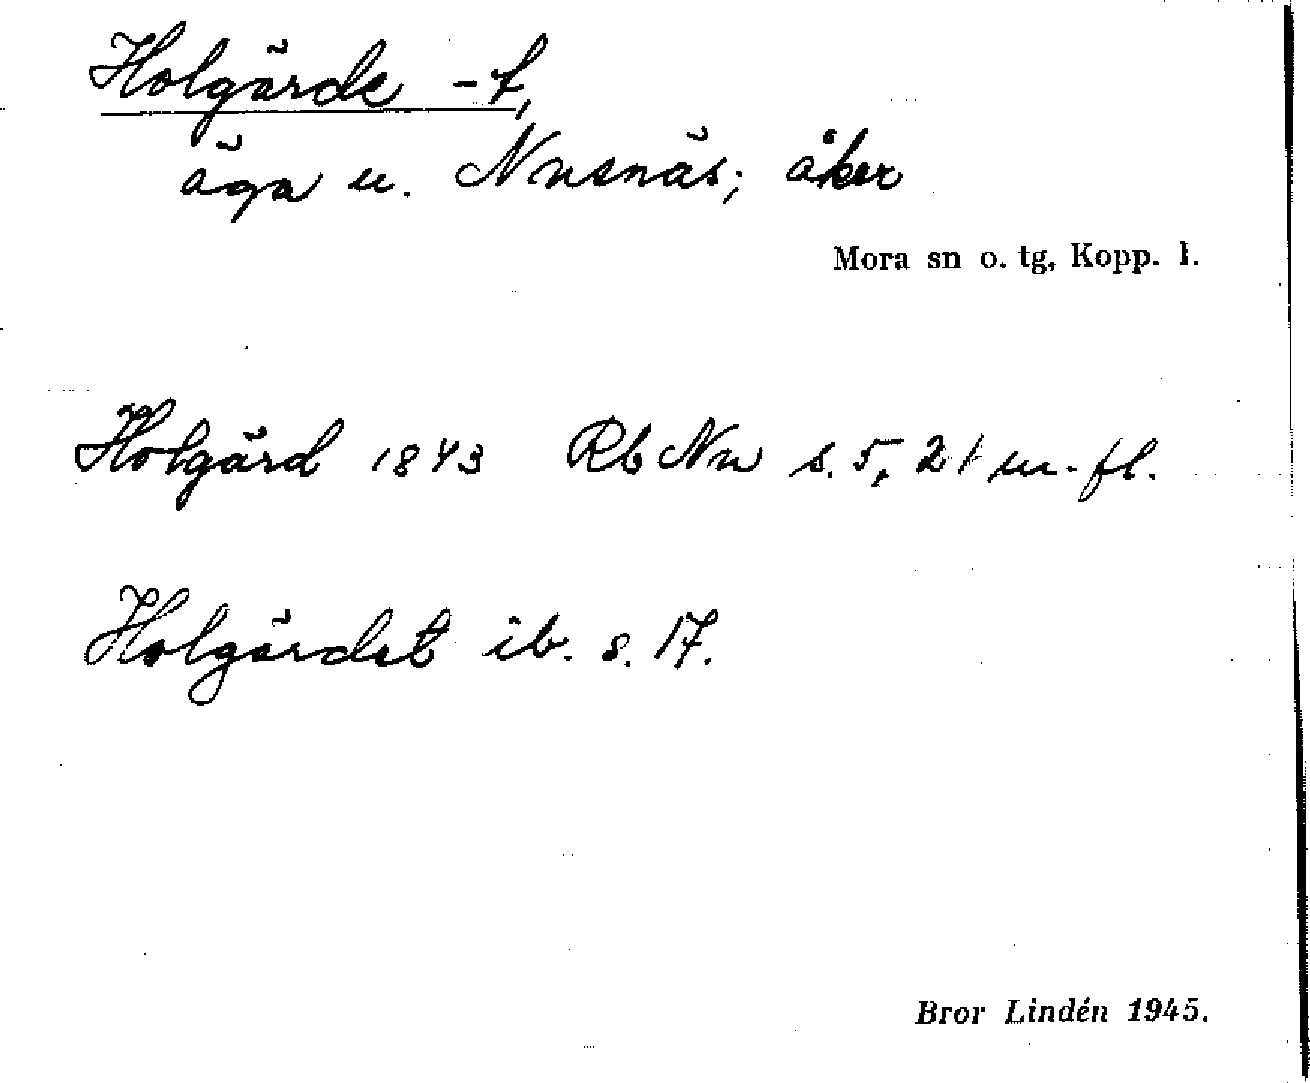 Holgärde -t,
äga u. Nusnäs; åker
Mora sn o. tg, Kopp. l.
Holgärd 1843 Rb Nu s. 5, 21 m. fl.
Holgärdet ib. s. 17.
Bror Lindén 1945.